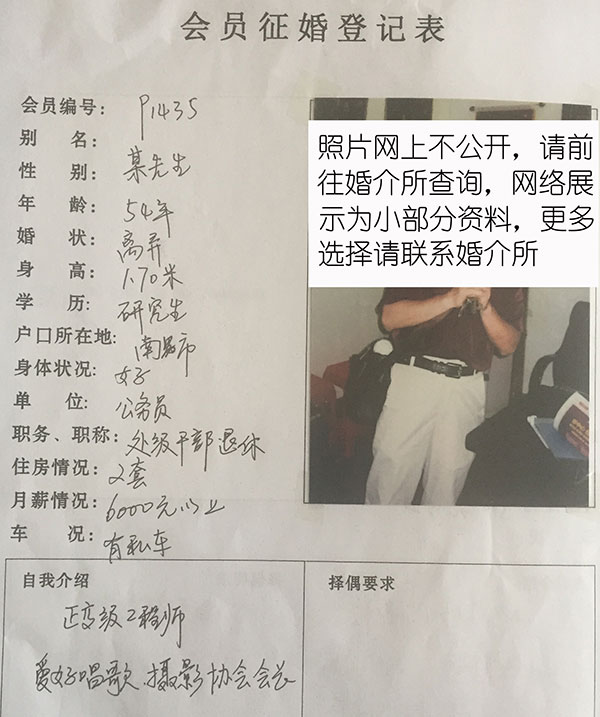 会员征婚登记表
会员编号: P1435
别 名: 某先生
性 别:
年 龄: 54年
婚 状: 离异
身 高: 1.70米
学 历: 研究生
户口所在地: 南昌市
身体状况: 好
单 位: 公务员
职务、职称: 处级干部退休
住房情况: 2套
月薪情况: 6000元以上
车 况: 有私车
照片网上不公开，请前
往婚介所查询，网络展
示为小部分资料，更多
选择请联系婚介所
自我介绍
正高级工程师
爱好唱歌.摄影协会会长
择偶要求